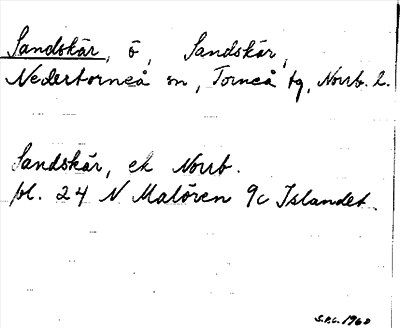 Sandskär, ö, Sandskär,
Nedertorneå sn, Torneå tg, Norrb. l.
Sandskär, ek Norrb.
bl. 24 N Malören 9c Islandet.
S.P.C. 1960